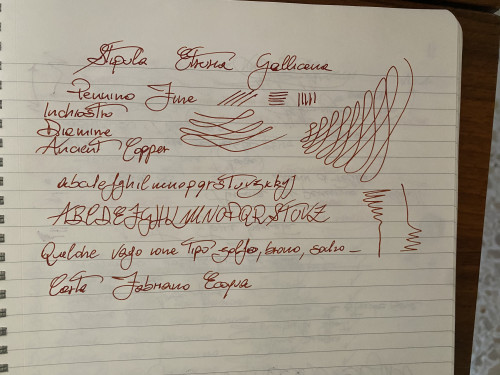 Stipula Etruria Gallicana
Pennino Fine
Inchiostro
Diamine
Ancient Copper
abcdefghilmnopqrstuvzxkyj
ABCDEFGHILMNOPQRSTUVZ
Qualche vago tipo
Carta Fabriano Ecoqua